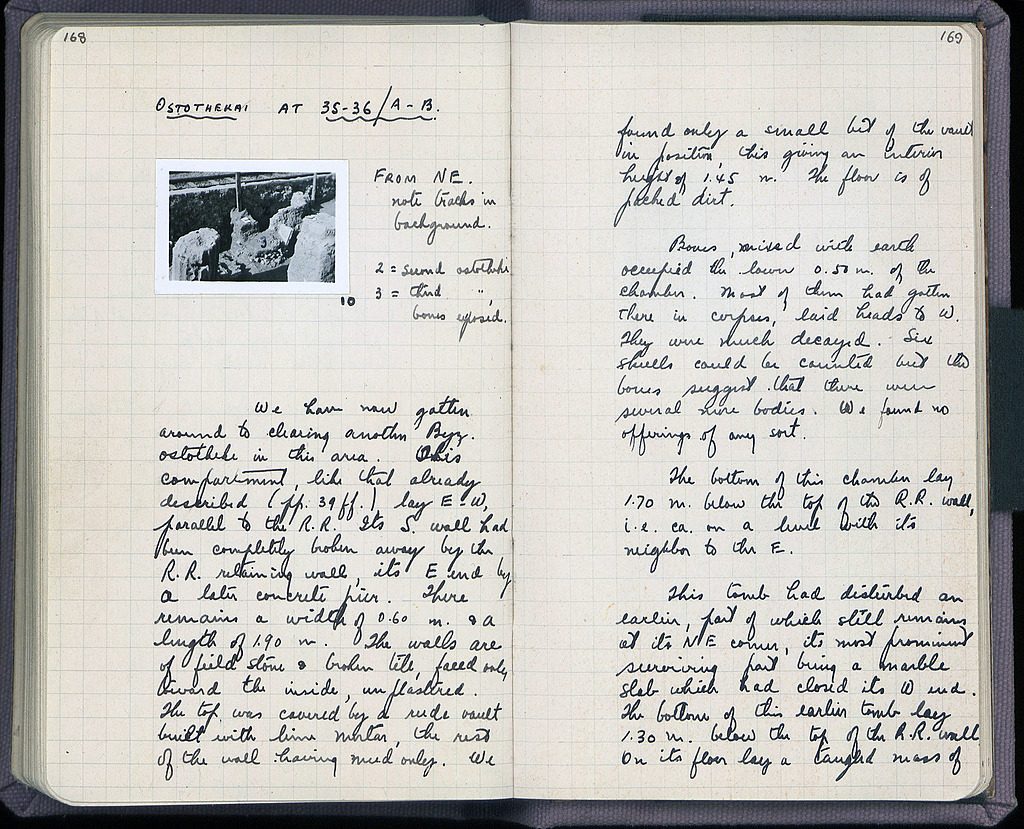 168
OSTOTHEKAI AT 35-36/A-B.
FROM NE.
note tracks in
background.
2 = second ostotheke
3 = third "
bones exposed.
10
We have now gotten
around to clearing another Byz.
ostotheke in this area. This
compartment, like that already
described (pp. 39 ff.) lay E-W,
parallel to the R.R. Its S. wall had
been completely broken away by the
R.R. retaining wall, its E end by
a later concrete pier. There
remains a width of 0.60 m. & a
length of 1.90 m. The walls are
of field stone & broken tile, faced only
toward the inside, unplastered.
The top was covered by a rude vault
built with lime mortar, the rest
of the wall having mud only. We
169
found only a small bit of the vault
in position, this giving an interior
height of 1.45 m. The floor is of
packed dirt.
Bones, mixed with earth
occupied the lower 0.50 m. of the
chamber. Most of them had gotten
there in corpses, laid heads to W.
They were much decayed. Six
skulls could be counted but the
bones suggest that there were
several more bodies. We found no
offerings of any sort.
The bottom of this chamber lay
1.70 m. below the top of the R.R. wall,
i.e. ca. on a level with its
neighbor to the E.
This tomb had disturbed an
earlier, part of which still remains
at its NE corner, its most prominent
surviving part being a marble
slab which had closed its W end.
The bottom of this earlier tomb lay
1.30 m. below the top of the R.R. wall
On its floor lay a tangled mass of